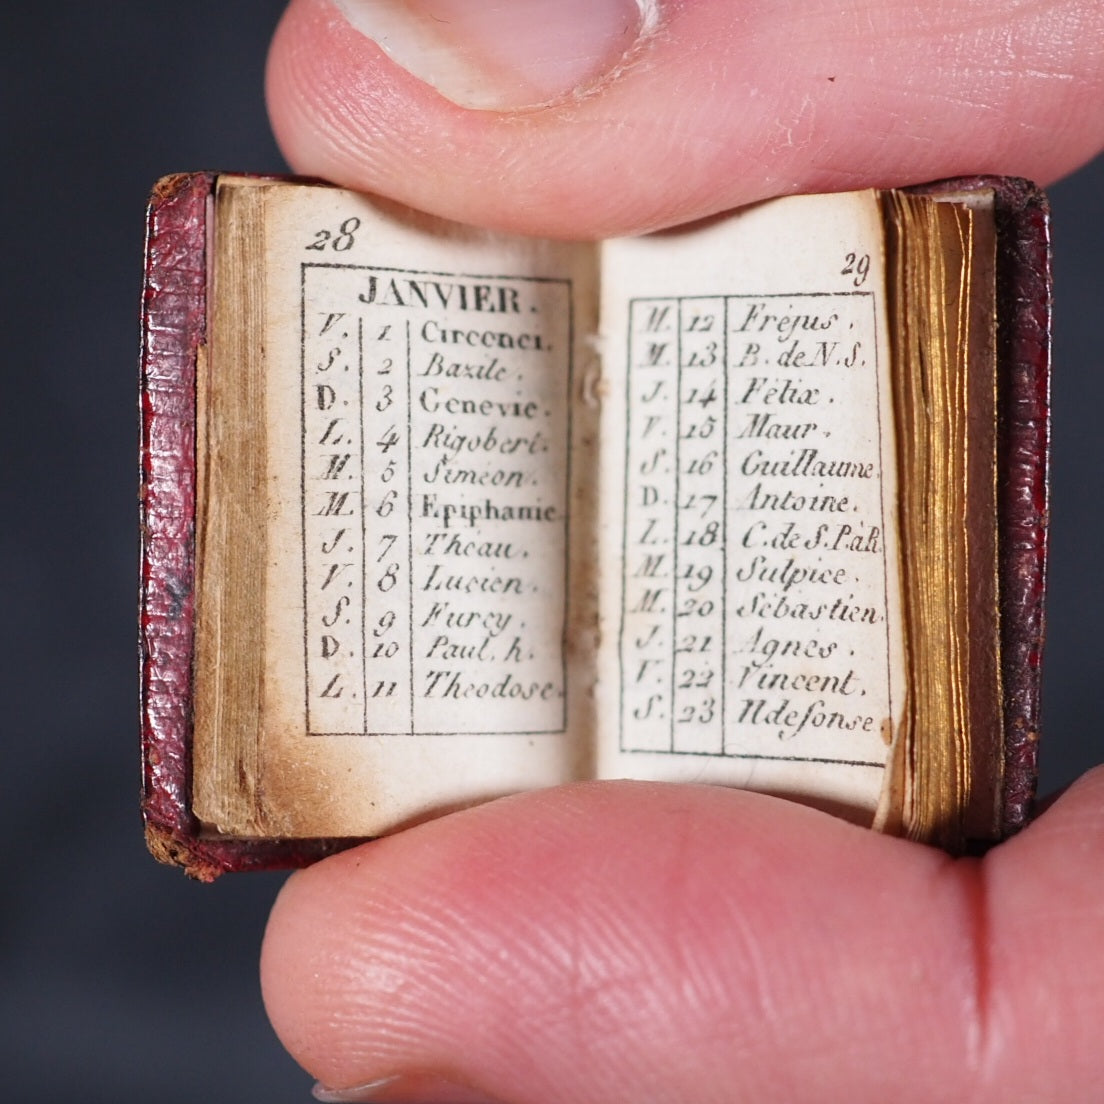 28
JANVIER.
V. 1 Circonci.
S. 2 Bazile.
D. 3 Genevie.
L. 4 Rigobert.
M. 5 Siméon.
M. 6 Epiphanie.
J. 7 Théau.
V. 8 Lucien.
S. 9 Furcy.
D. 10 Paul. h.
L. 11 Theodose.
29
M. 12 Fréjus.
M. 13 B. de N. S.
J. 14 Félix.
V. 15 Maur.
S. 16 Guillaume.
D. 17 Antoine.
L. 18 C. de S. P. àR.
M. 19 Sulpice.
M. 20 Sébastien.
J. 21 Agnès.
V. 22 Vincent.
S. 23 Ildefonse.